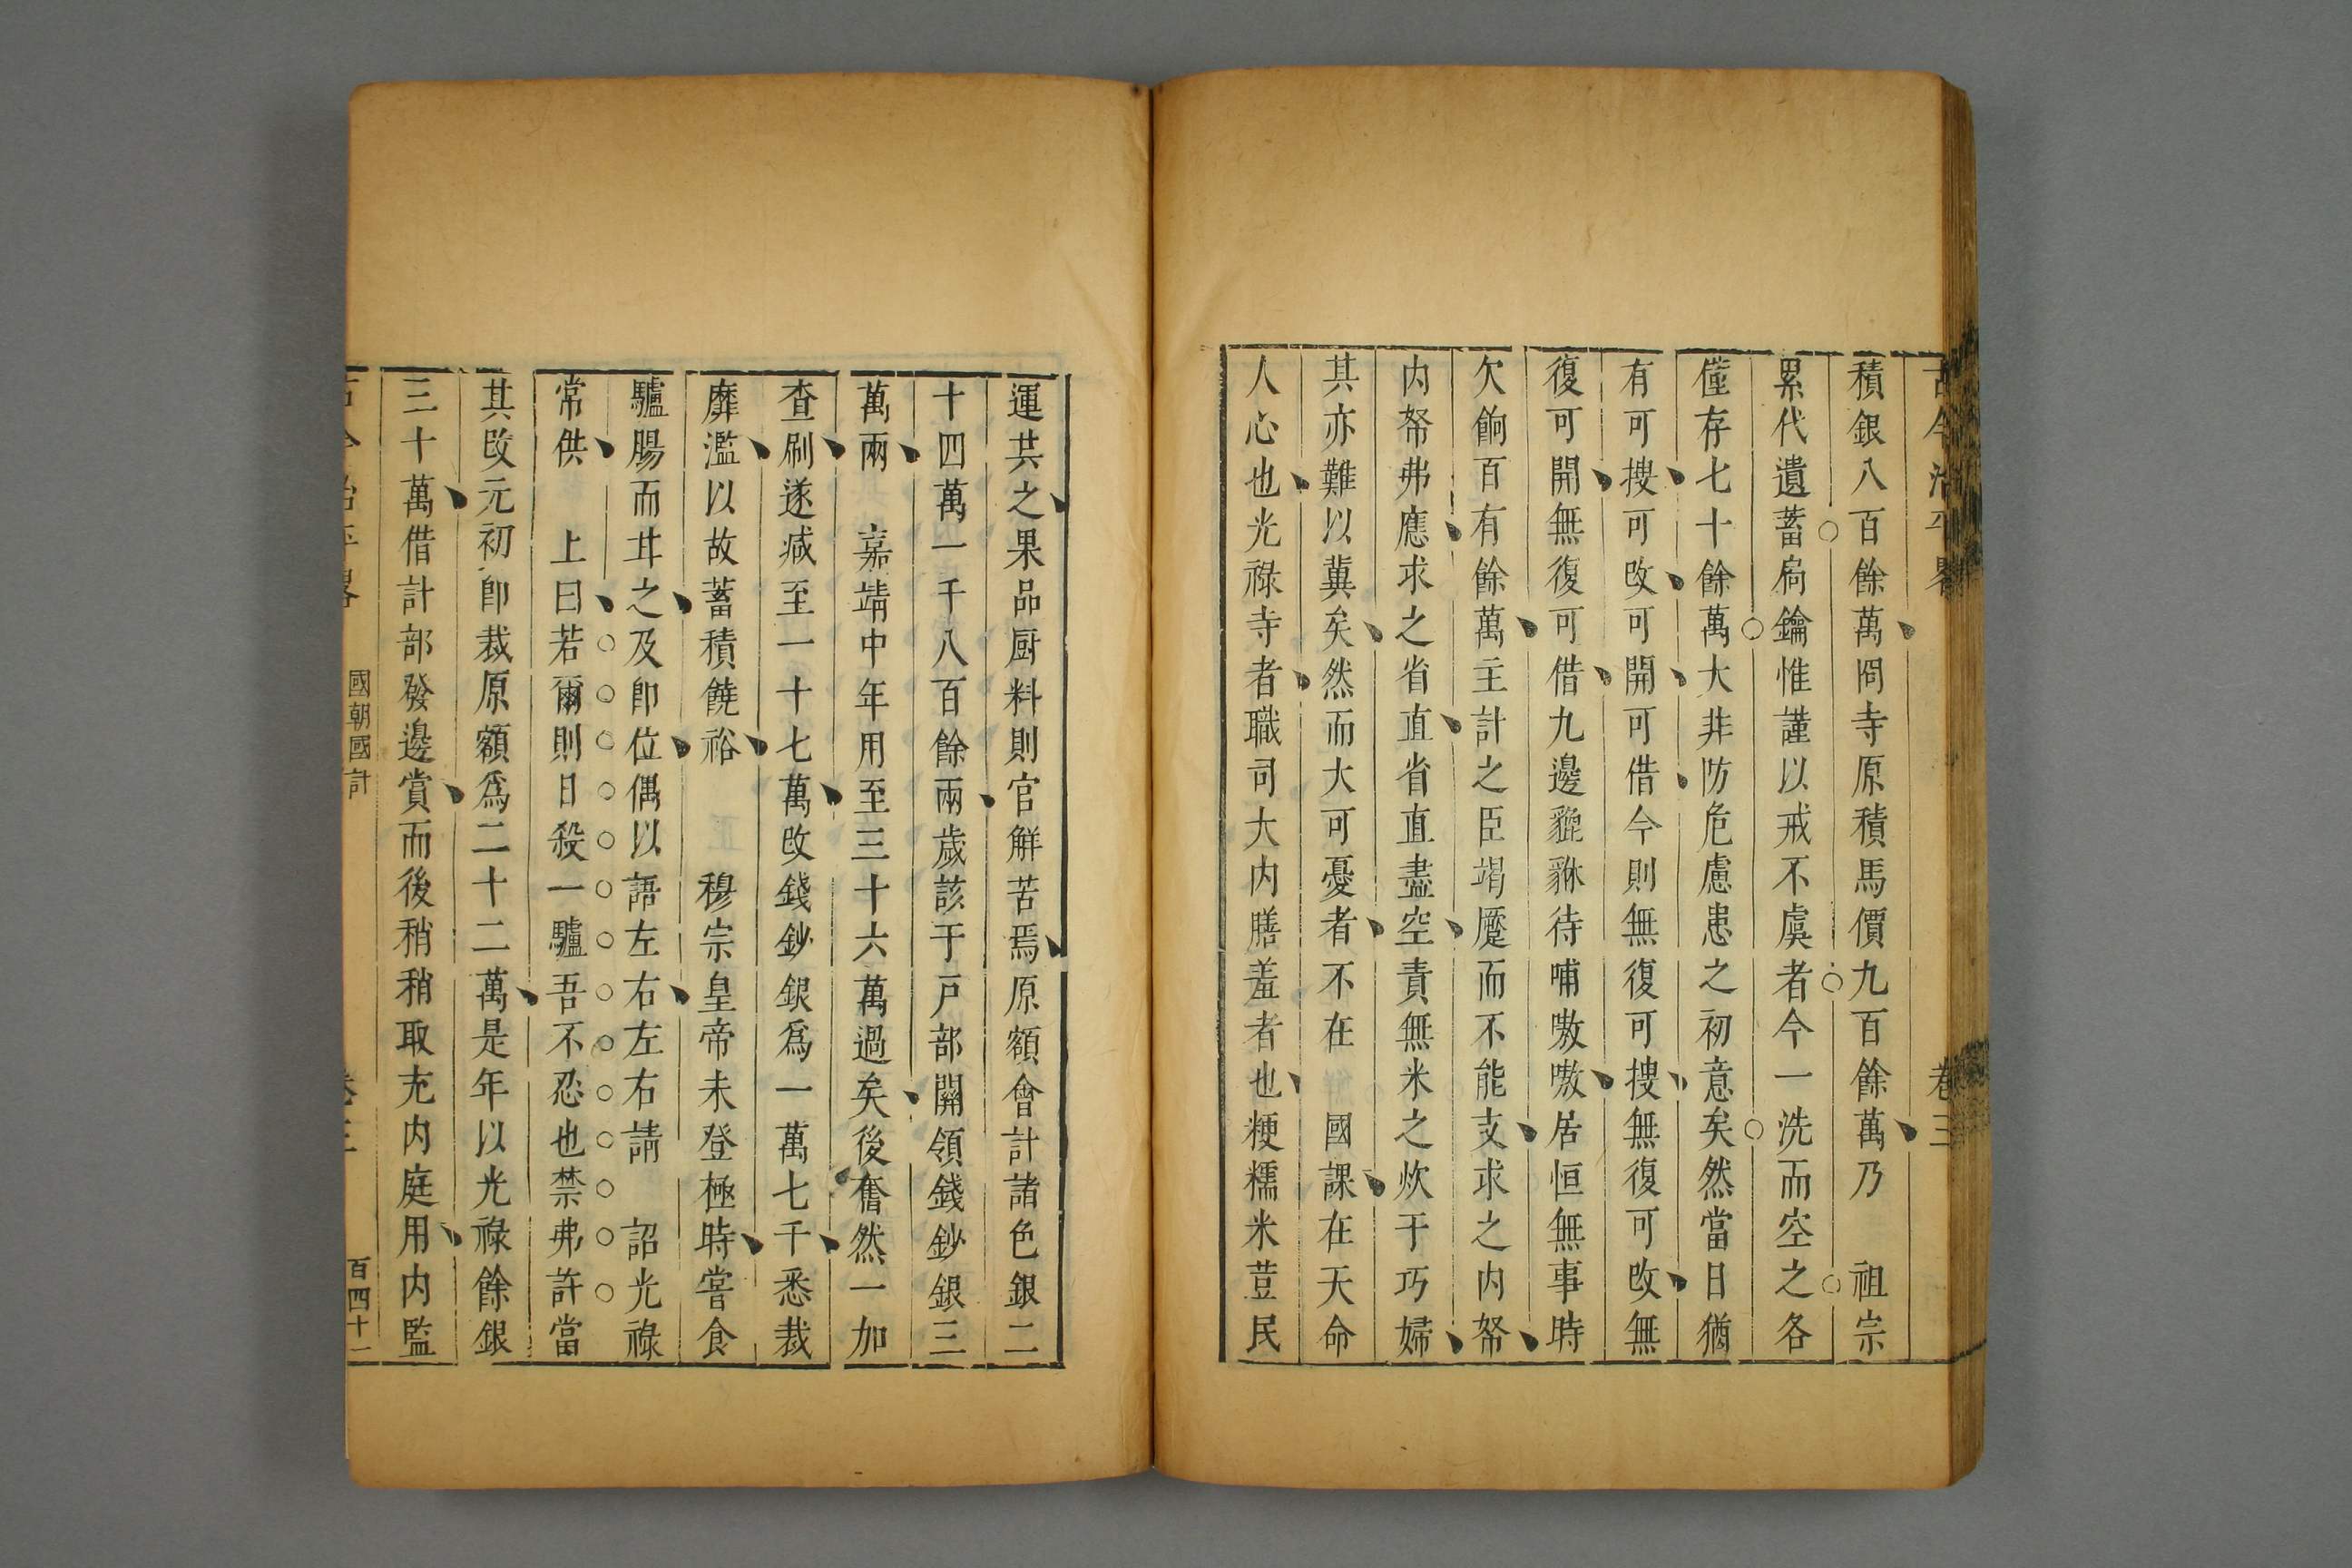 古今治平畧 卷三
積銀八百餘萬冏寺原積馬價九百餘萬乃 祖宗
累代遺蓄扃鑰惟謹以戒不虞者今一洗而空之各
僅存七十餘萬大非防危慮患之初意矣然當日猶
有可搜可改可開可借今則無復可搜無復可改無
復可開無復可借九邊貔貅待哺嗷嗷居恒無事時
欠餉百有餘萬主計之臣竭蹷而不能支求之内帑
内帑弗應求之省直省直盡空責無米之炊于巧婦
其亦難以冀矣然而大可憂者不在 國課在天命
人心也光祿寺者職司大内膳羞者也粳糯米荳民
運共之果品厨料則官解苦焉原額會計諸色銀二
十四萬一千八百餘兩歲該于戸部關領錢鈔銀三
萬兩 嘉靖中年用至三十六萬過矣後奮然一加
查刷遂减至一十七萬改錢鈔銀爲一萬七千悉裁
靡濫以故蓄積饒裕 穆宗皇帝未登極時嘗食
驢腸而甘之及卽位偶以語左右左右請 詔光祿
常供 上曰若爾則日殺一驢吾不忍也禁弗許當
其改元初卽裁原額爲二十二萬是年以光祿餘銀
三十萬借計部發邊賞而後稍稍取充内庭用内監
古今治平畧 國朝國計 卷三 百四十一